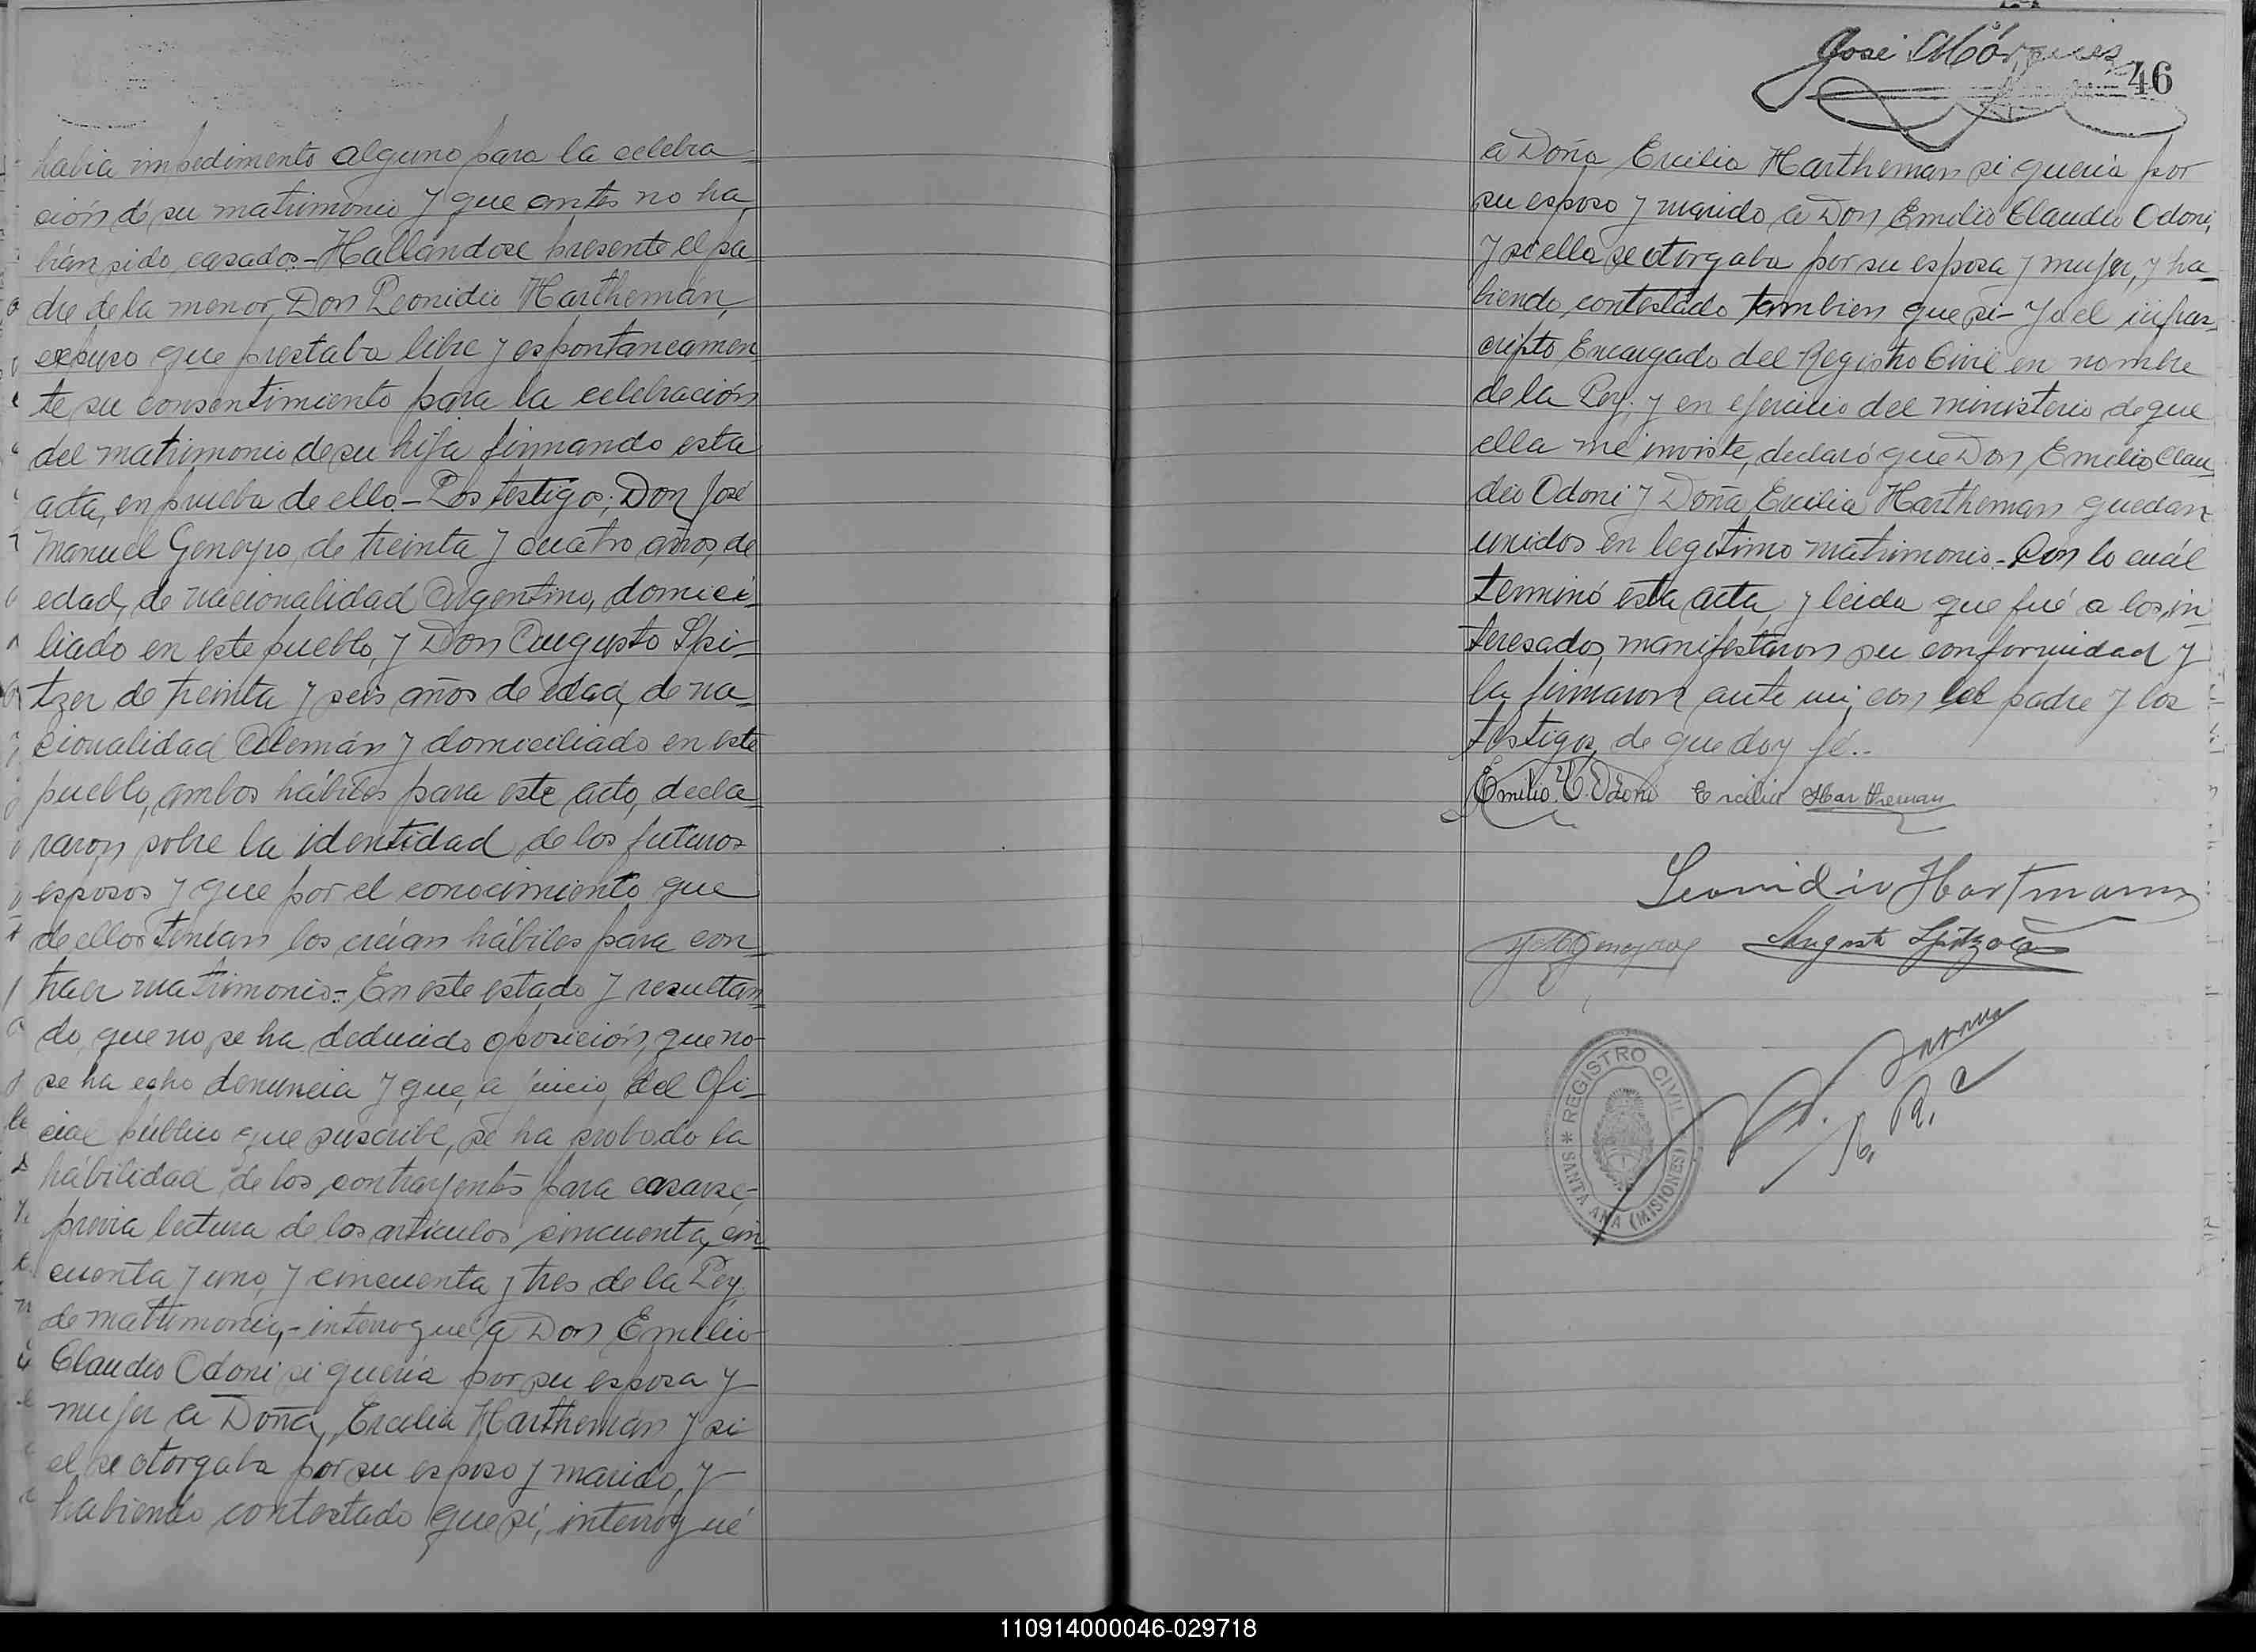 habia impedimento alguno para la celebra
ción de su matrimonio y que antes no ha
bían sido casados.- Hallándose presente el pa
dre de la menor, Don Leonidio Harthemán,
expuso que prestaba libre y espontaneamen
te su consentimiento para la celebración
del matrimonio de su hija firmando esta
acta, en prueba de ello.- Los testigos; Don José
Manuel Geneyro, de treinta y cuatro años, de
edad, de nacionalidad Argentino, domici-
liado en este pueblo, y Don Augusto Spi-
tzer de treinta y seis años de edad, de na-
cionalidad Alemán y domiciliado en este
pueblo, ambos hábiles para este acto, decla-
raron sobre la identidad de los futuros
esposos y que por el conocimiento que
de ellos tenían los creían hábiles para con-
traer matrimonio.- En este estado y resultan-
do, que no se ha deducido oposición, que no
se ha echo denuncia y que, a juicio, del Ofi-
cial público que suscribe, se ha probado la
hábilidad de los contrayentes para casarse,-
previa lectura de los artículos cincuenta, cin-
cuenta y uno, y cincuenta y tres de la Ley
de matrimonio,- interrogué a Don Emilio
Claudio Odoni si quería por su esposa y
mujer a Doña, Ercilia Harthemán y si
el se otorgaba por su esposo y marido, y
habiendo contestado que sí, interrogué
José Márquez
46
a Doña Ercilia Hartheman si quería por
su esposo y marido a Don Emilio Claudio Odoni,
y si ella se otorgaba por su esposa y mujer, y ha-
biendo contestado tambien que si- Yo el infras-
cripto Encargado del Registro Civil en nombre
de la Ley, y en ejercicio del ministerio de que
ella me inviste, declaró que Don Emilio Clau-
dio Odoni y Doña Ercilia Hartheman quedan
unidos en legítimo matrimonio.- Con lo cuál
terminó esta acta, y leida que fué a los in
teresados, manifestaron su conformidad y
la firmaron ante mi, con el padre y los
testigos, de que doy fé..
Emilio C. Odoni Ercilia Hartheman
Leonidio Hartmann
August Spitzer
REGISTRO CIVIL
SANTA ANA (MISIONES)
110914000046-029718